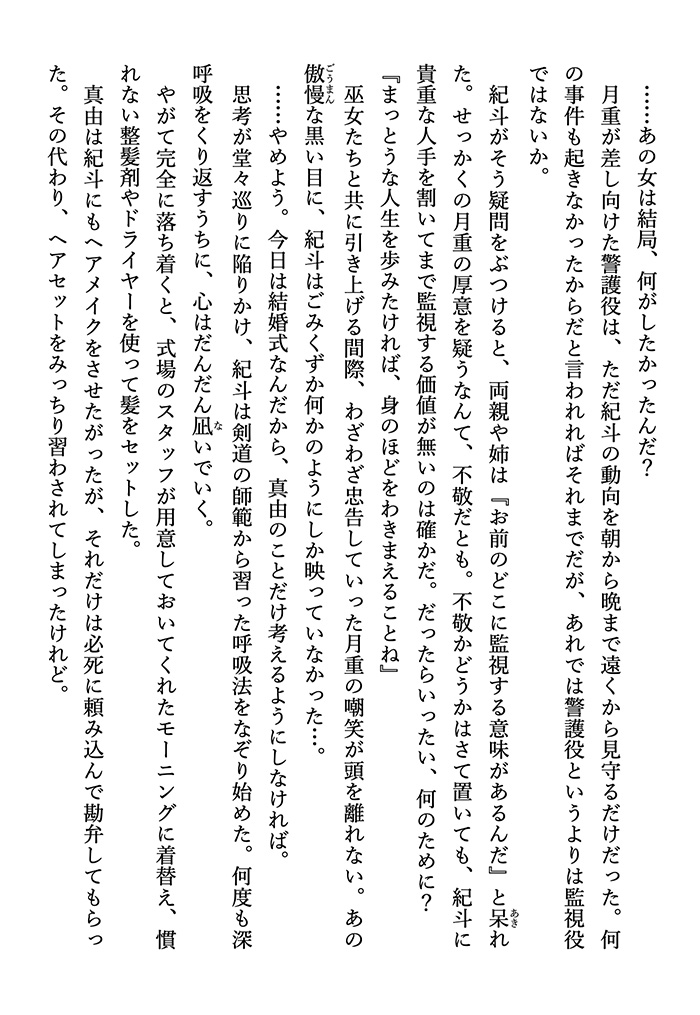 ……あの女は結局、何がしたかったんだ？
月重が差し向けた警護役は、ただ紀斗の動向を朝から晩まで遠くから見守るだけだった。何
の事件も起きなかったからだと言われればそれまでだが、あれでは警護役というよりは監視役
ではないか。
紀斗がそう疑問をぶつけると、両親や姉は『お前のどこに監視する意味があるんだ』と呆れ
た。せっかくの月重の厚意を疑うなんて、不敬だとも。不敬かどうかはさて置いても、紀斗に
貴重な人手を割いてまで監視する価値が無いのは確かだ。だったらいったい、何のために？
『まっとうな人生を歩みたければ、身のほどをわきまえることね』
巫女たちと共に引き上げる間際、わざわざ忠告していった月重の嘲笑が頭を離れない。あの
傲慢な黒い目に、紀斗はごみくずか何かのようにしか映っていなかった…。
……やめよう。今日は結婚式なんだから、真由のことだけ考えるようにしなければ。
思考が堂々巡りに陥りかけ、紀斗は剣道の師範から習った呼吸法をなぞり始めた。何度も深
呼吸をくり返すうちに、心はだんだん凪いでいく。
やがて完全に落ち着くと、式場のスタッフが用意しておいてくれたモーニングに着替え、慣
れない整髪剤やドライヤーを使って髪をセットした。
真由は紀斗にもヘアメイクをさせたがったが、それだけは必死に頼み込んで勘弁してもらっ
た。その代わり、ヘアセットをみっちり習わされてしまったけれど。